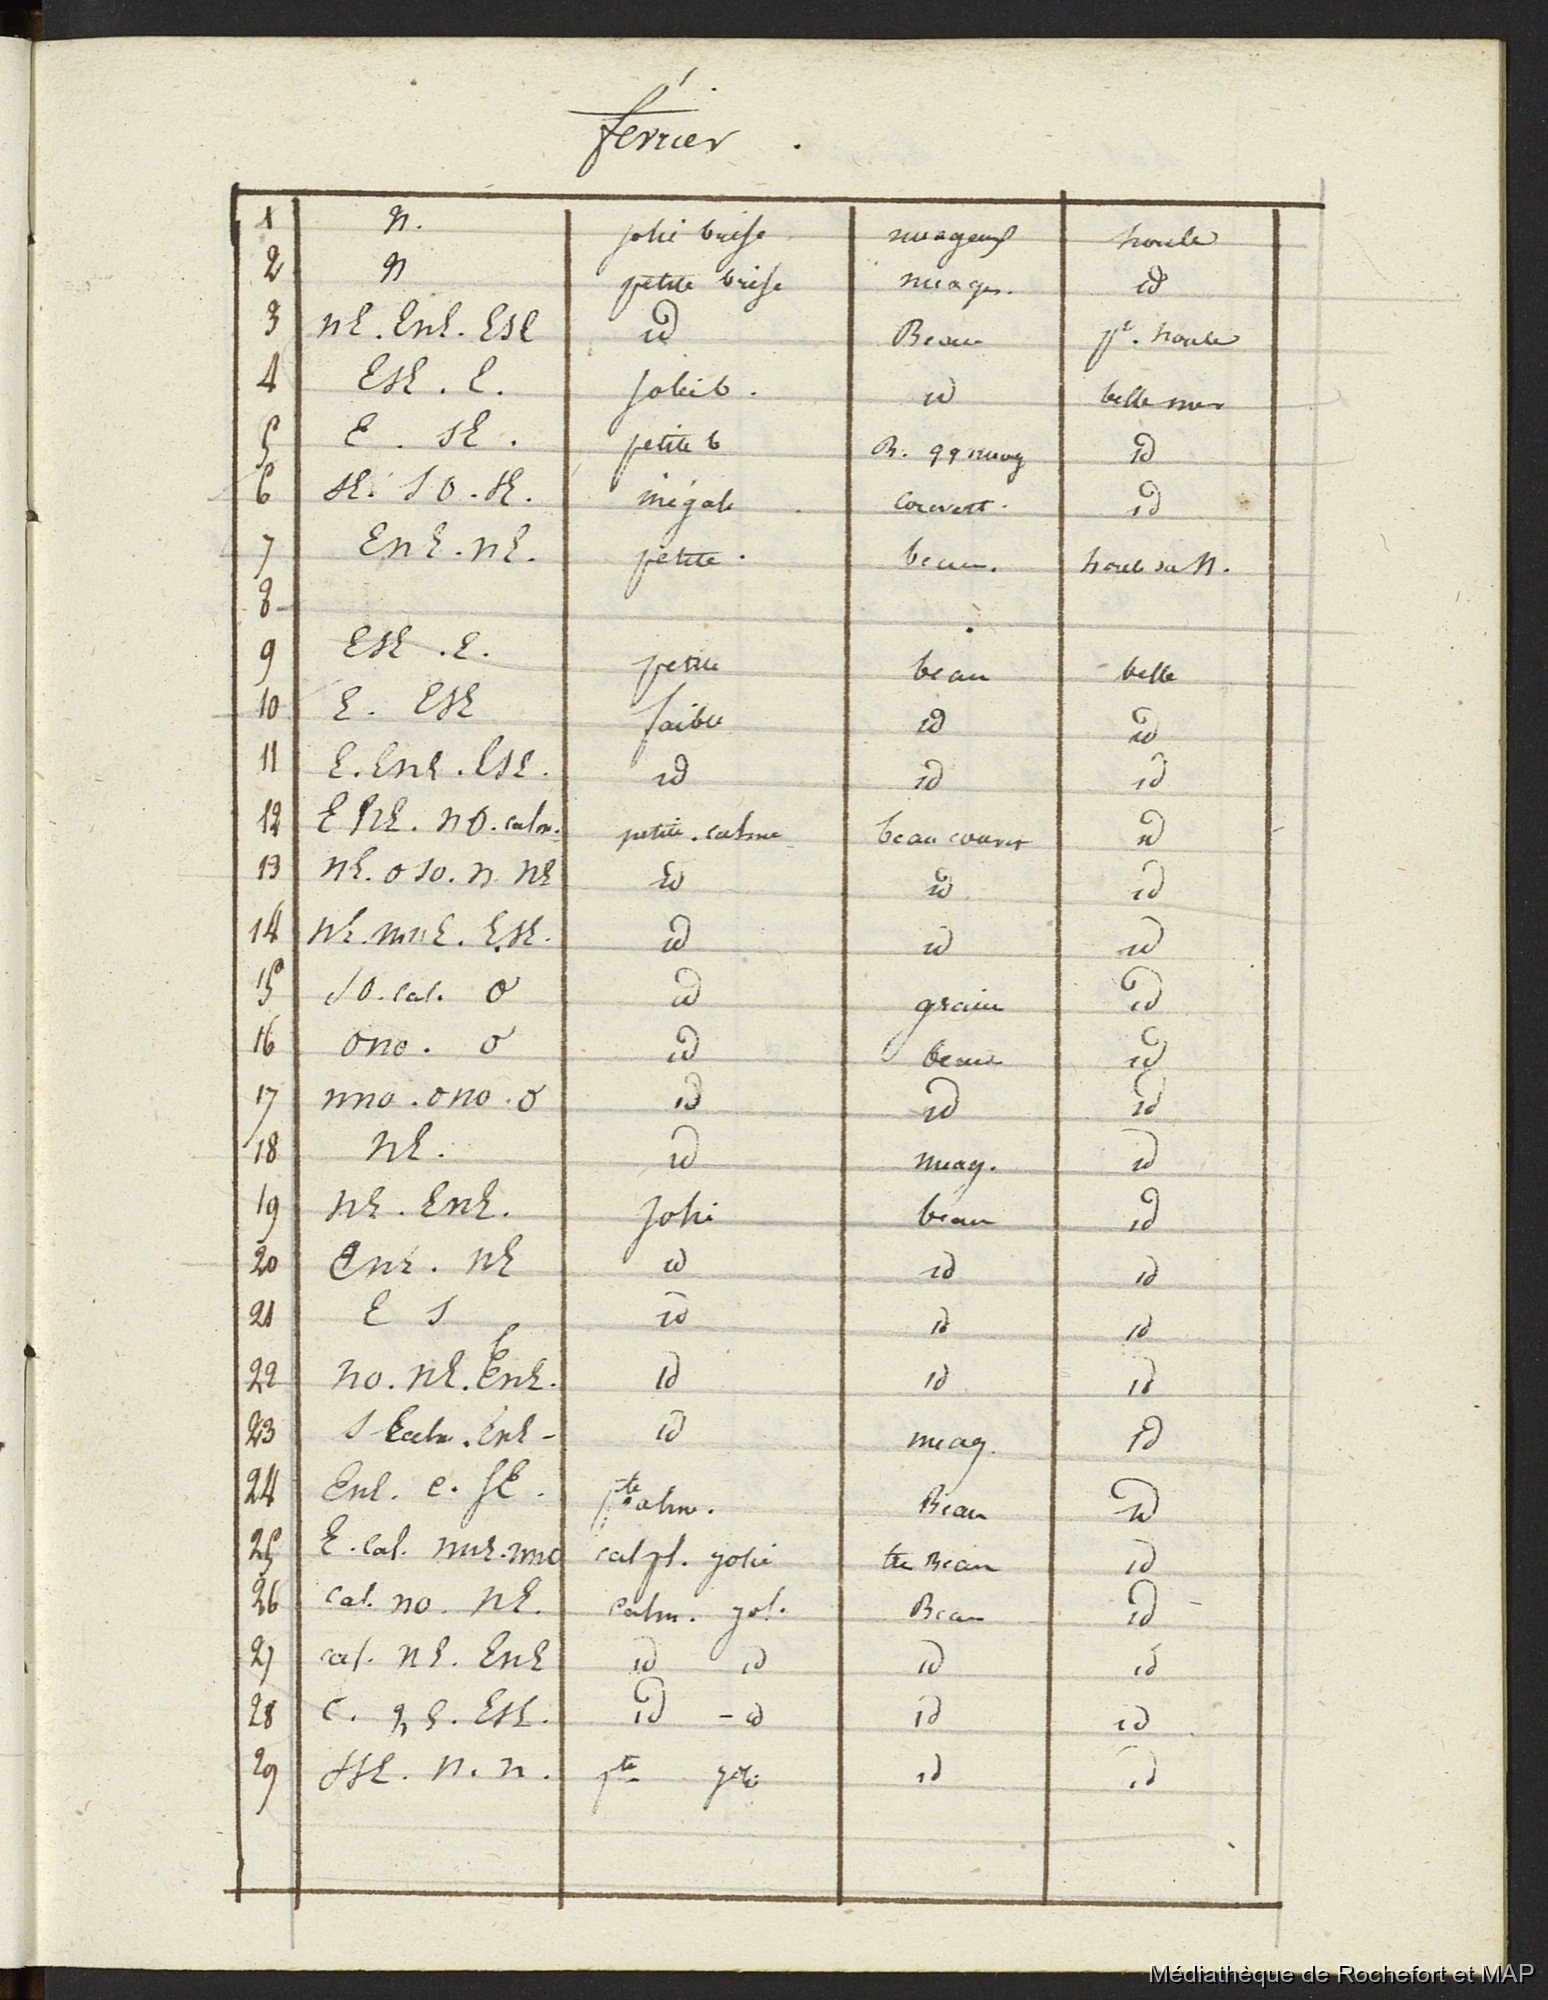 février .
1 N. jolie brise nuageux houle
2 N petite brise nuages. id
3 NE. ENE. ESE id Beau pte. houle
4 ESE. E. jolie b. id belle mer
5 E. SE. petite b B. qq nuag id
6 SE. SO. SE. inégale couvert. id
7 ENE. NE. petite. beau. houle du N.
8
9 ESE. E. petite beau belle
10 E. ESE faible id id
11 E. ENE. ESE. id id id
12 E NE. NO. calm. petite. calme beau couvert id
13 NE. O SO. N. NE id id id
14 NE. NNE. ESE. id id id
15 SO. cal. O id grain id
16 ONO. O id beau id
17 NNO. ONO. O id id id
18 NE. id nuag. id
19 NE. ENE. Jolie beau id
20 ENE. NE id id id
21 E S id id id
22 NO. NE. ENE. id id id
23 S calm. ENE - id nuag. id
24 ENE. E. SE. pte calm. Beau id
25 E. cal. NNE. NNO cal pt. jolie tre Beau id
26 cal. NO. NE. calm. jol. Beau id
27 cal. NE. ENE id id id id
28 E. ESE. id - id id id
29 SSE. N. N. pte jolie id id
Médiathèque de Rochefort et MAP